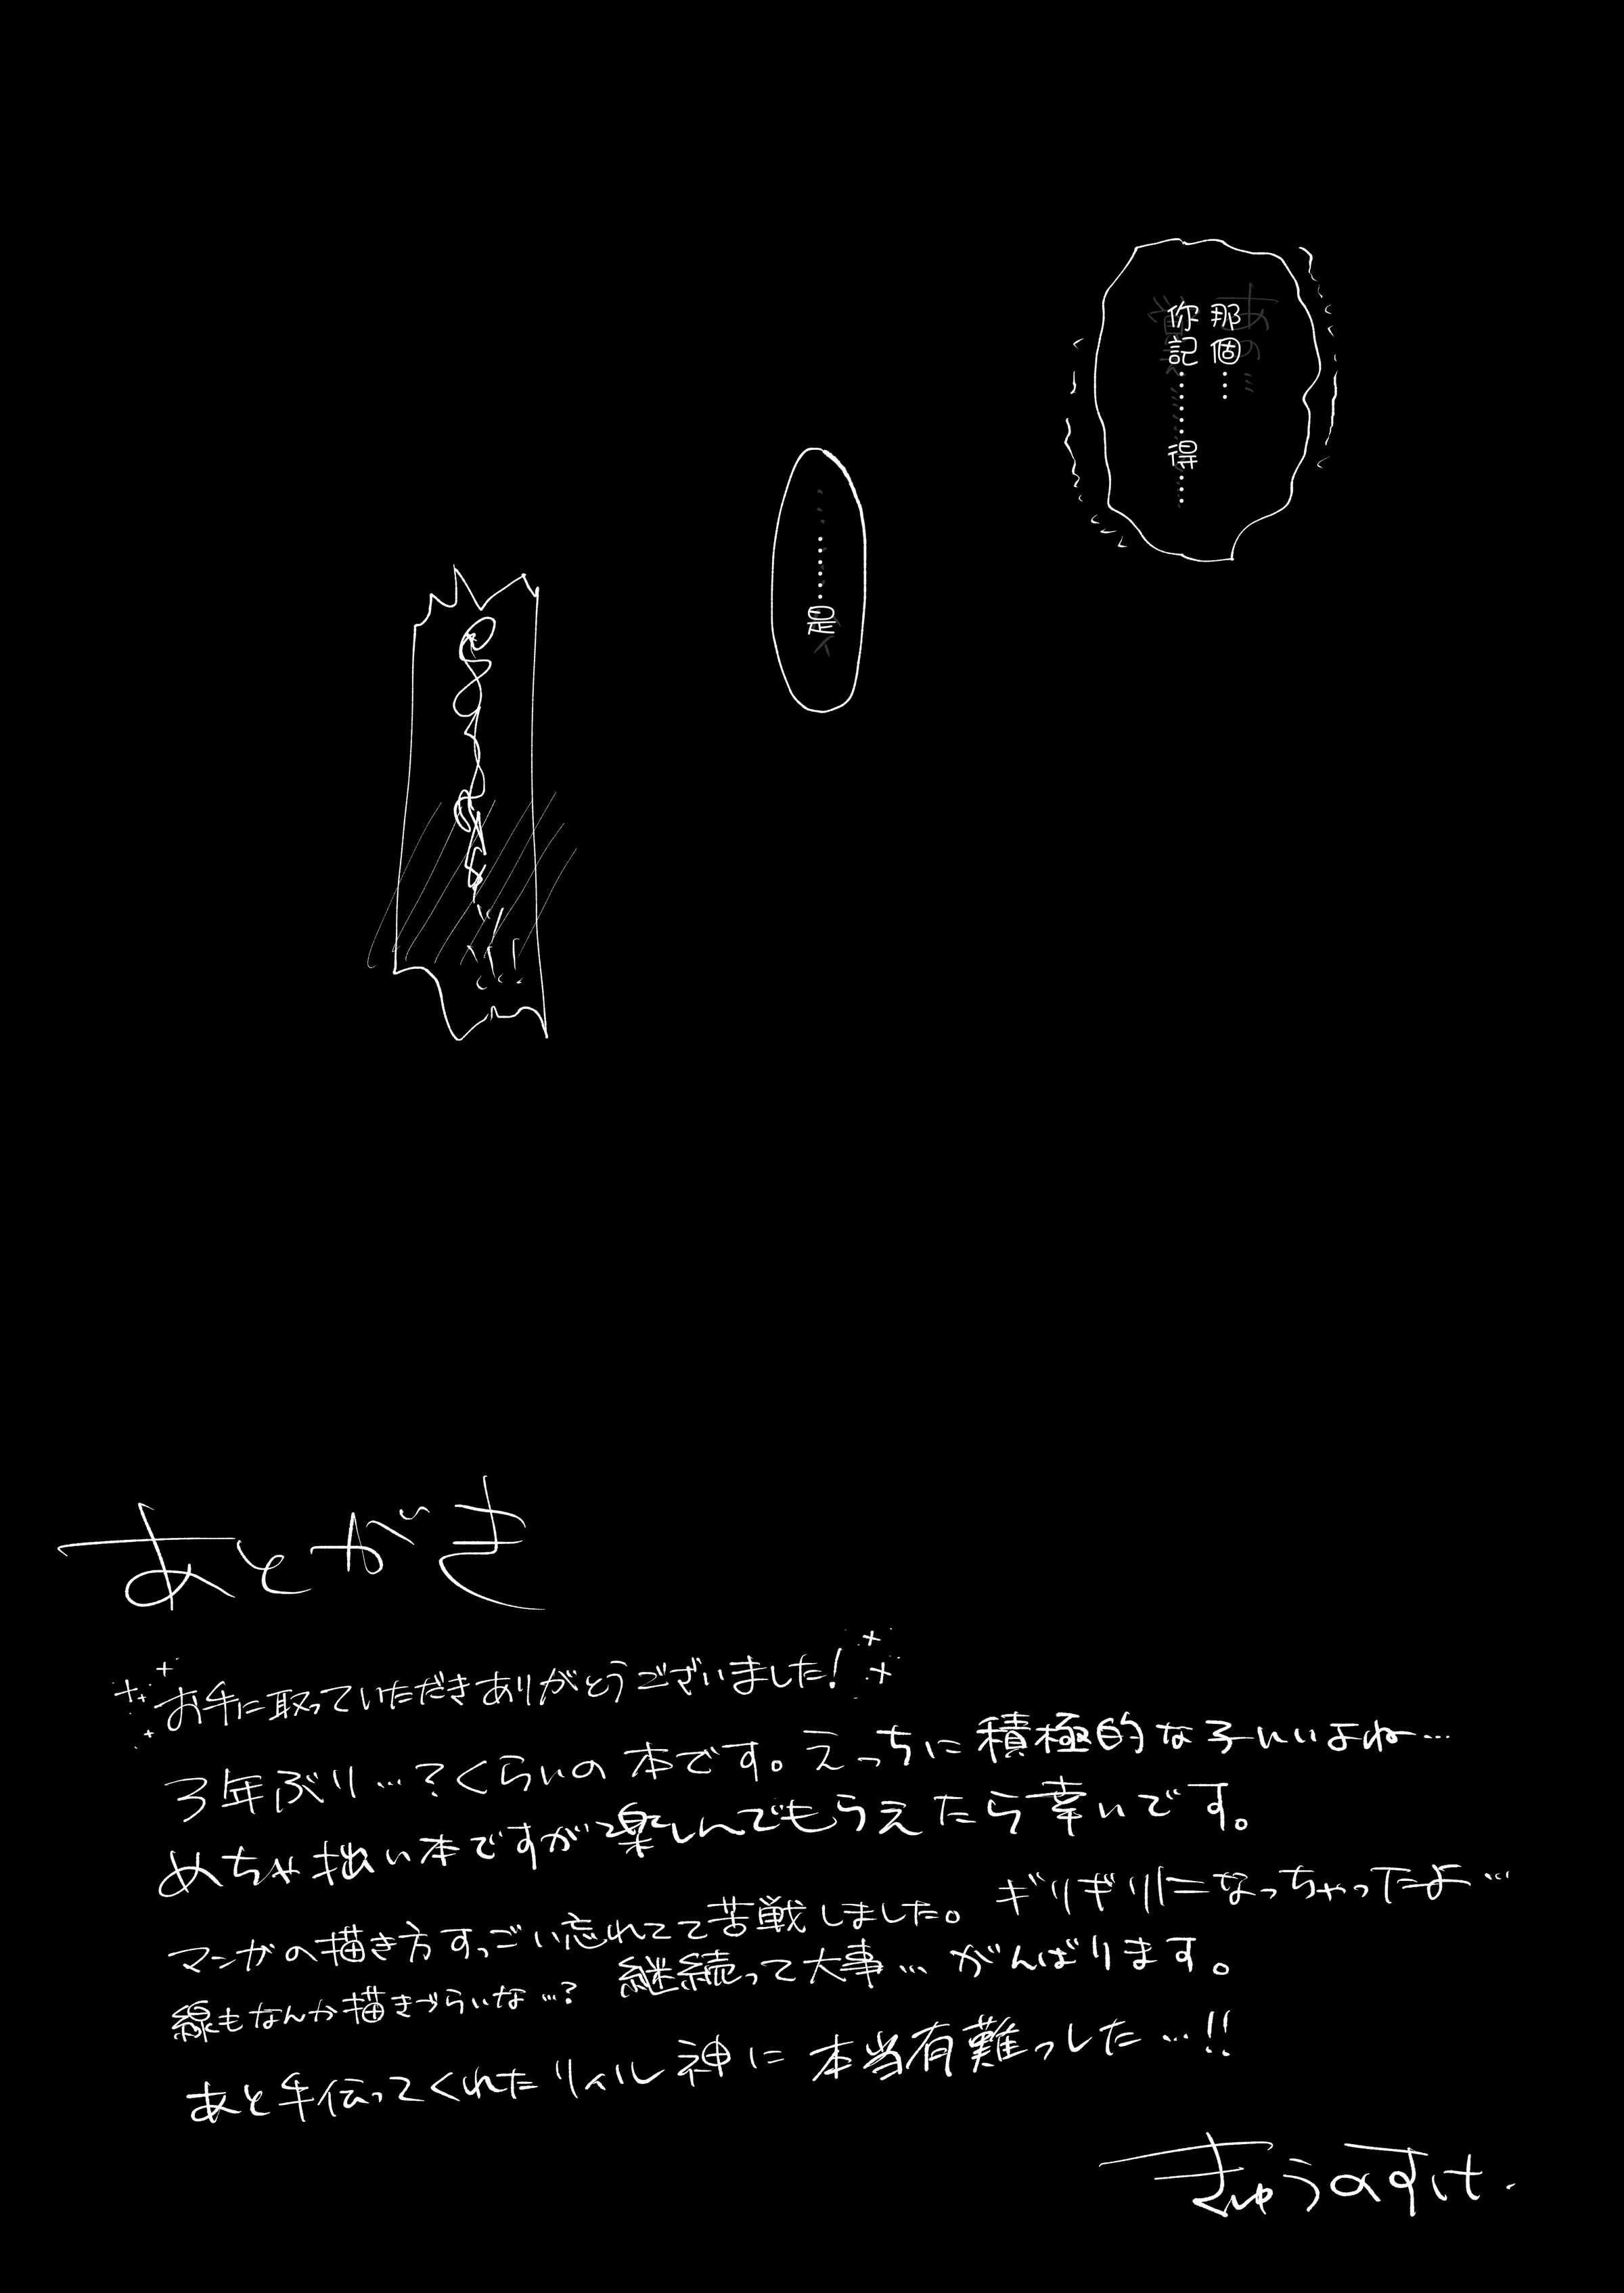 那個…
你記………得…
………是
あとがき
お手に取っていただきありがとうございました!
3年ぶり…?くらいの本です。えっちに積極的な子いいよね…
めちゃ拙い本ですが楽しんでもらえたら幸いです。
マンガの描き方すっごい忘れてて苦戦しました。ギリギリになっちゃったよ…
線もなんか描きづらいな…? 継続って大事… がんばります。
あと手伝ってくれたリィル神に本当有難っした…!!
きゅうのすけ.